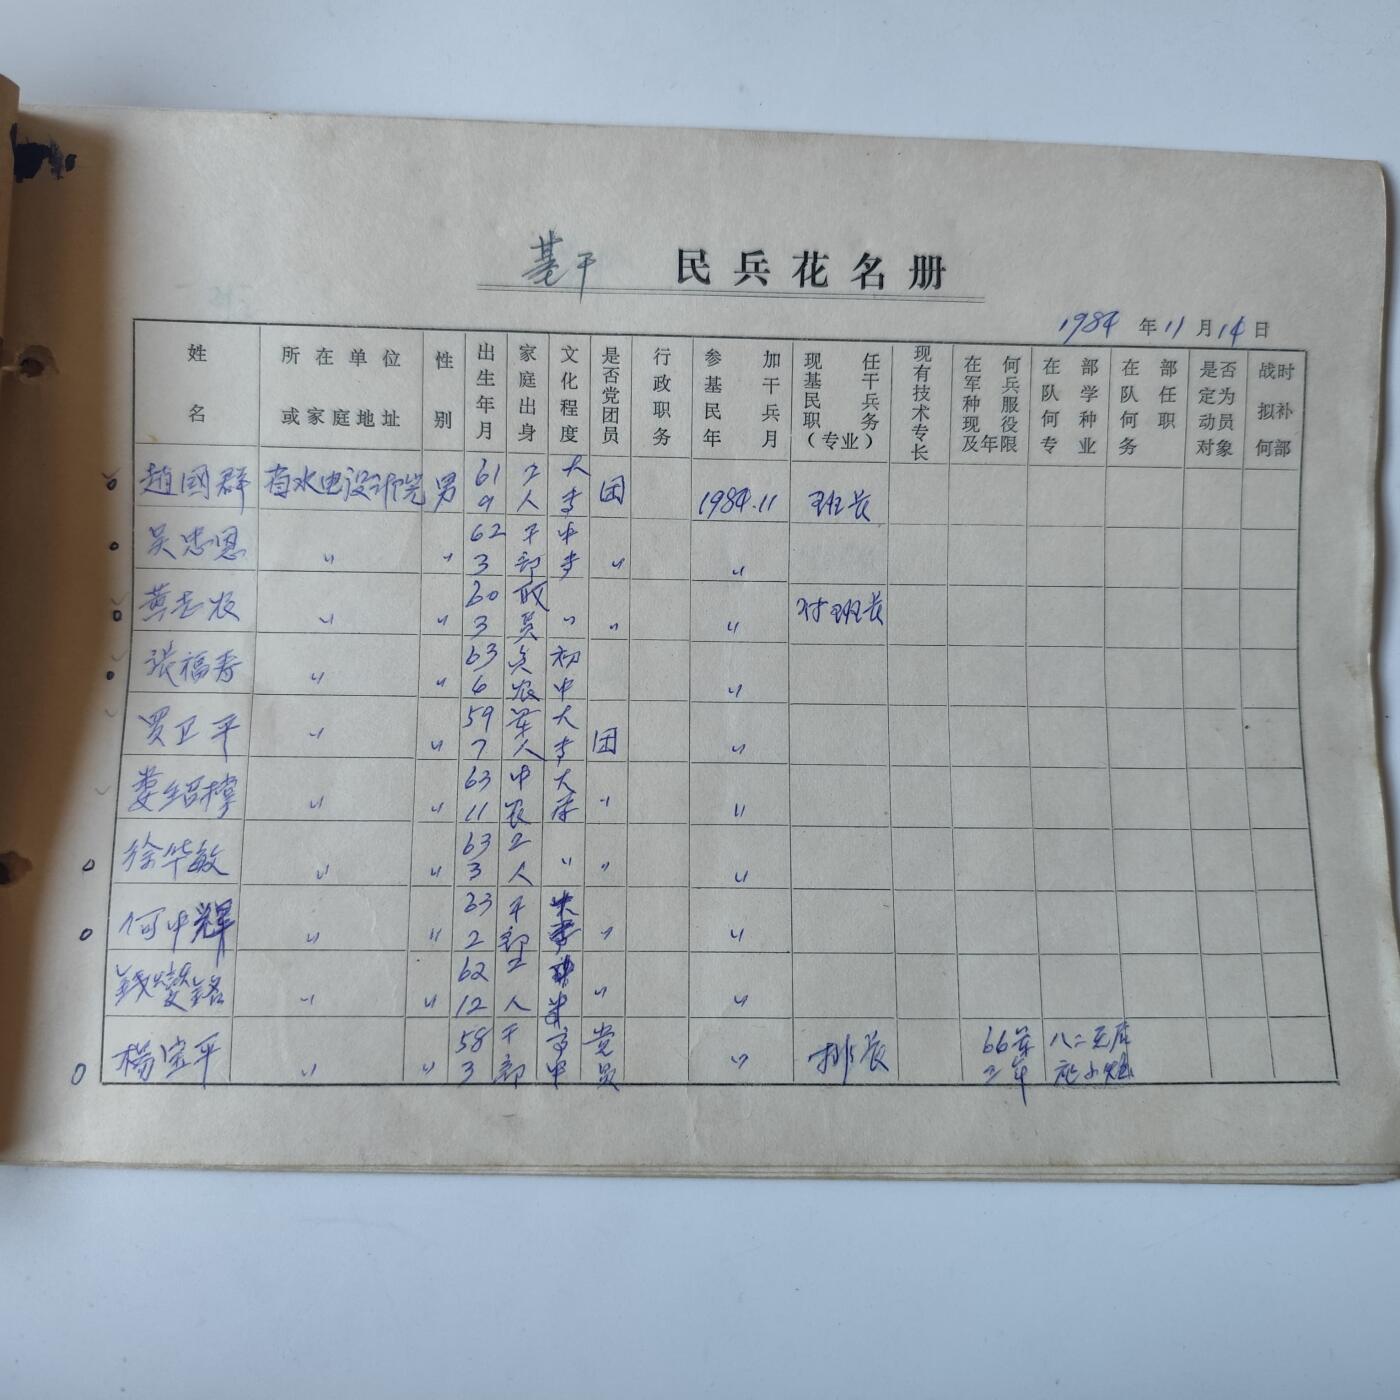 基干 民兵花名册
1984年11月14日
姓名 所在单位或家庭地址 性别 出生年月 家庭出身 文化程度 是否党团员 行政职务 参加基干民兵年月 现任基干民兵职务(专业) 现有技术专长 在何军兵种服现役及年限 在部队学何种专业 在部队任何职务 是否定为动员对象 战时拟补何部
趙國群 省水电设计院 男 61 9 工人 大专 团 1984.11 班长
吴忠恩 〃 〃 62 3 干部 中专 〃 〃
黄志 〃 〃 60 3 员 〃 〃 〃 付班长
张福寿 〃 〃 63 6 贫农 初中 〃
罗卫平 〃 〃 59 7 军人 大专 团 〃
娄绍 〃 〃 63 11 中农 大 〃 〃
徐华敏 〃 〃 63 3 工人 〃 〃 〃
何中辉 〃 〃 63 2 干部 〃 〃
钱燮铭 〃 〃 62 12 工人 〃 〃
杨宝平 〃 〃 58 3 干部 高中 党员 〃 排长 66军 三年 八二无后 炮